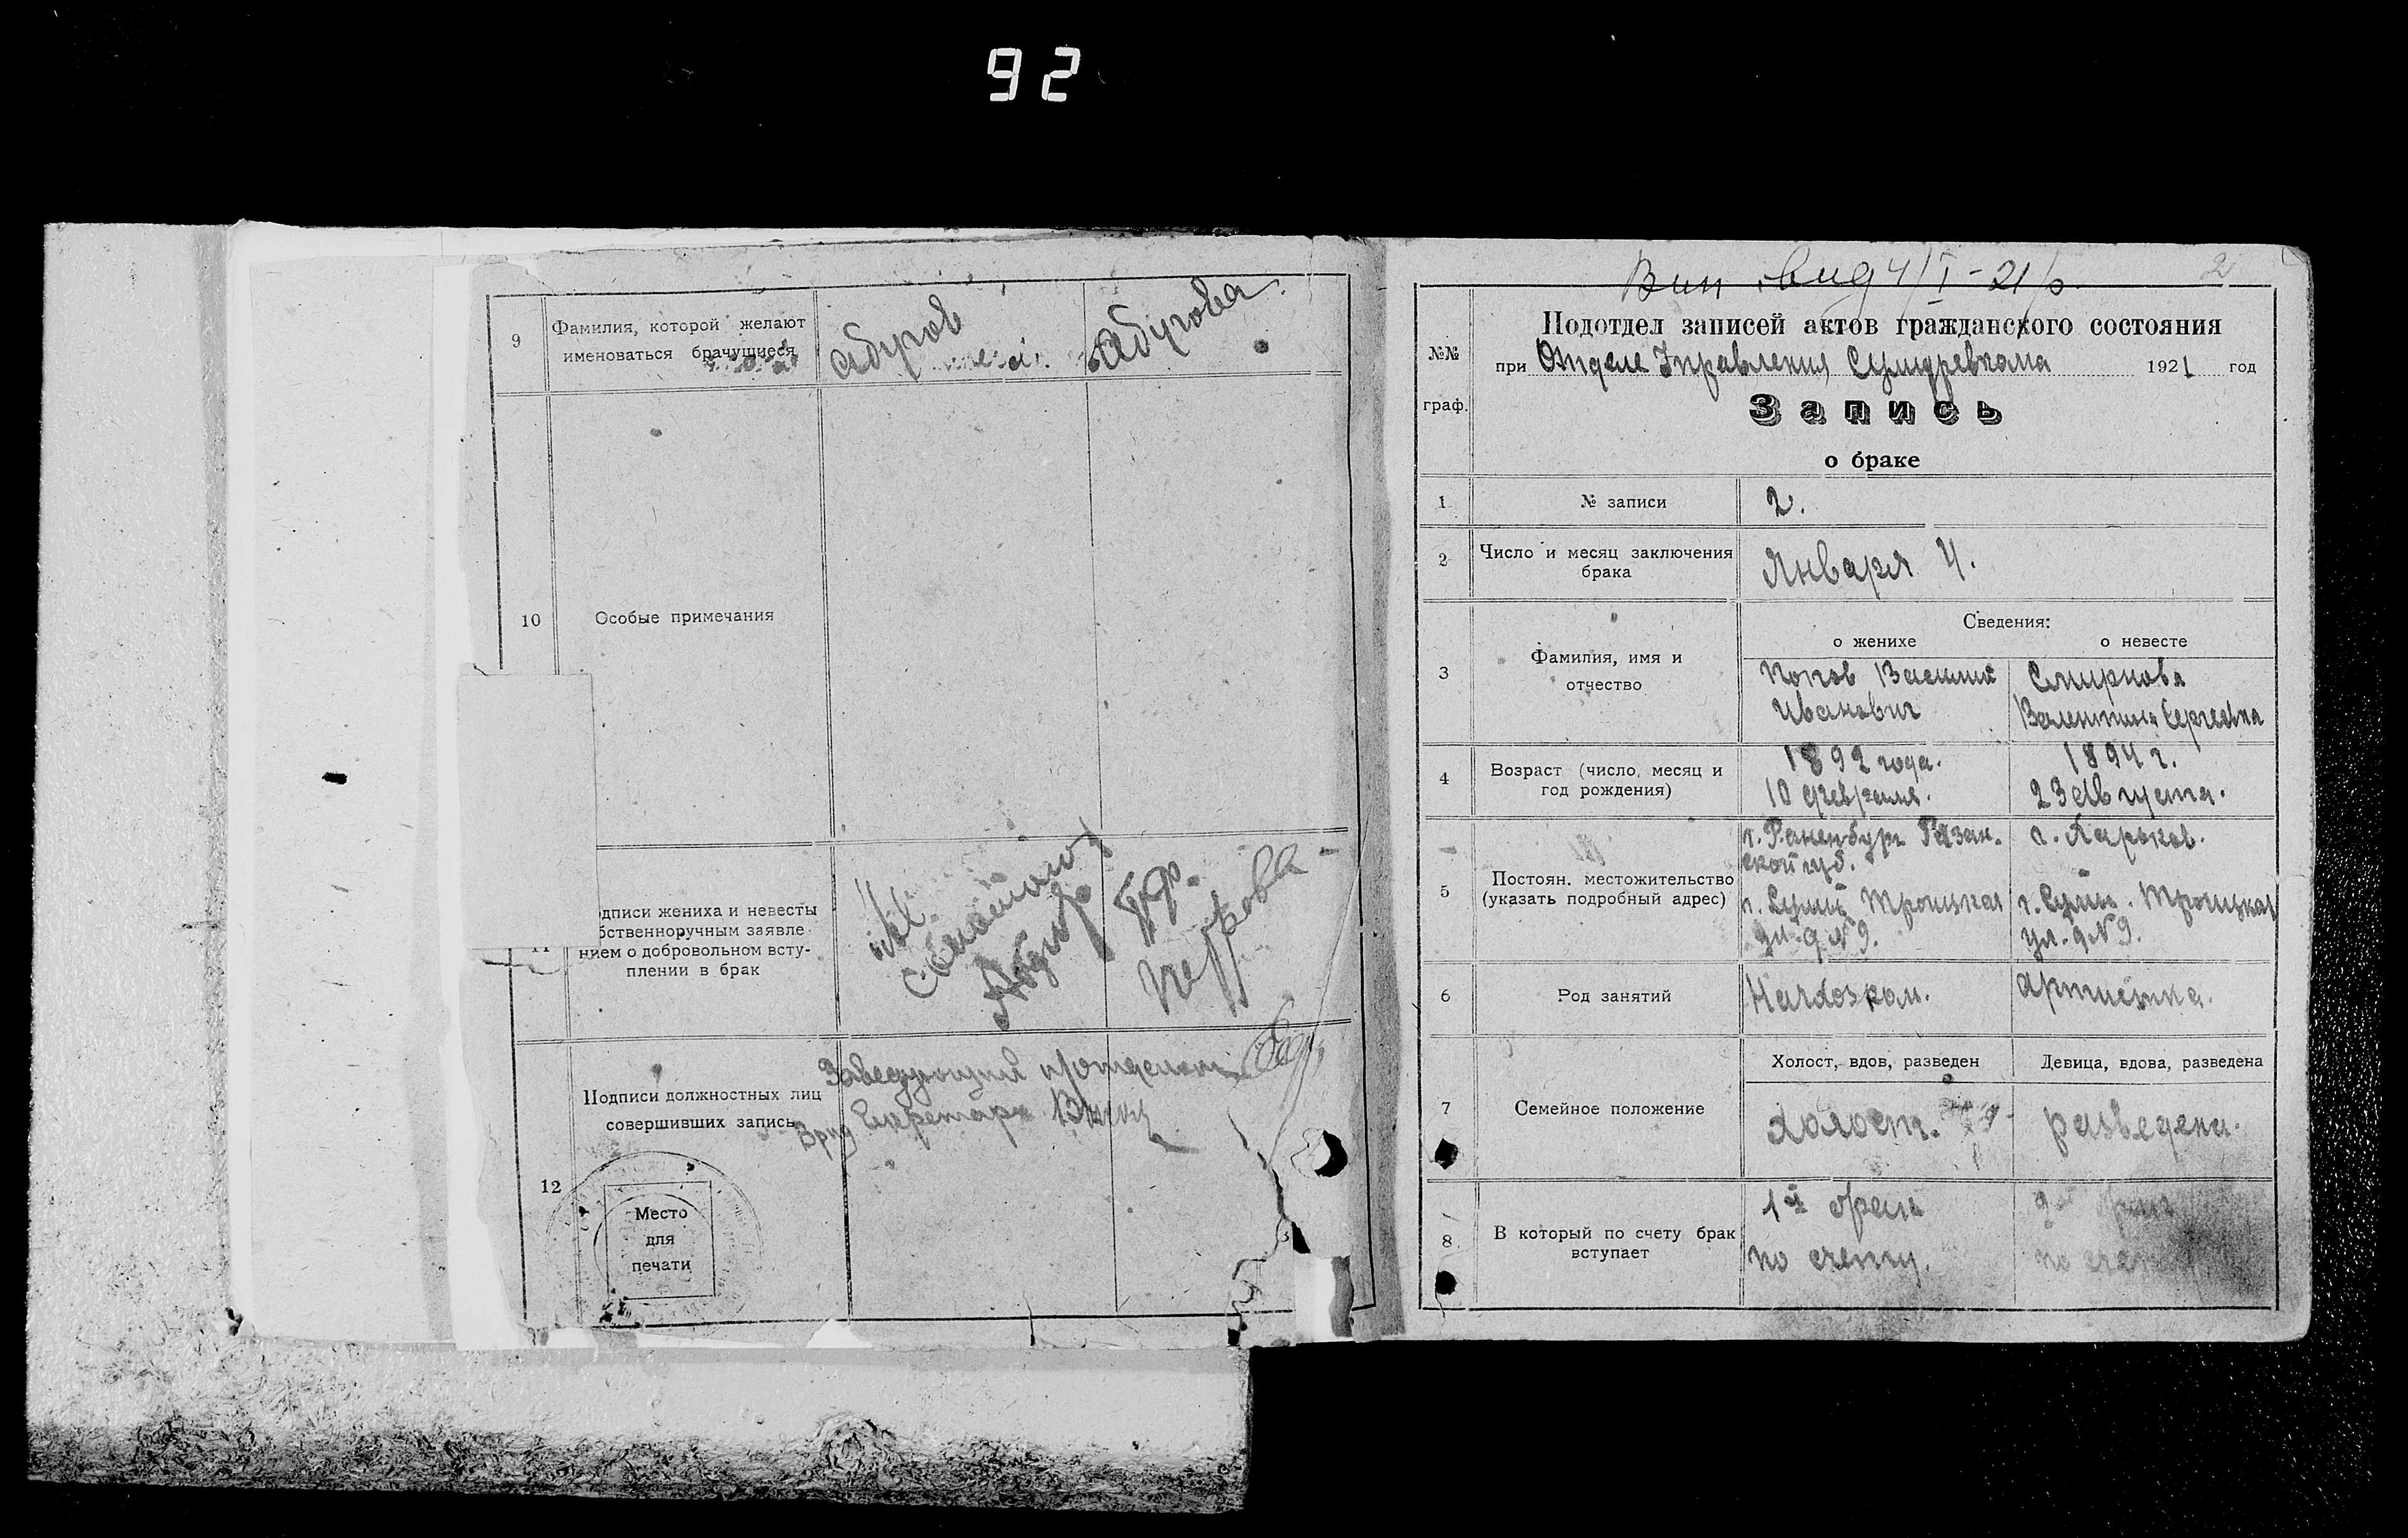 92
9
Фамилия, которой желают
именоваться брачущиеся
Абугов
Абугова.
10
Особые примечания
дписи жениха и невесты
бственноручным заявле
нием о добровольном всту-
плении в брак
12
Подписи должностных лиц
совершивших запись
Заведующий
Врид Секретаря
Место
для
печати
2
вид 4/I-21
№№
граф.
Подотдел записей актов гражданского состояния
при Отделе Управления Сумуревкома 1921 год
Запись
о браке
1
№ записи
2.
2
Число и месяц заключения
брака
Января 4.
3
Фамилия, имя и
отчество
Сведения:
о женихе
о невесте
Попов Василий
Иванович
Смирнова
Валентина Сергеевна
4
Возраст (число, месяц и
год рождения)
1892 года.
10 февраля.
1894 г.
23 Августа.
5
Постоян. местожительство
(указать подробный адрес)
г. Раненбург Рязан.
ской губ.
г. Сумы Троицкая
ул. д №9.
г. Харьков.
г. Сумы. Троицкая
ул. д №9.
6
Род занятий
Артистка.
7
Семейное положение
Холост, вдов, разведен
Девица, вдова, разведена
Холост.
разведена.
8
В который по счету брак
вступает
1й брак
по счету.
2й брак
по счету